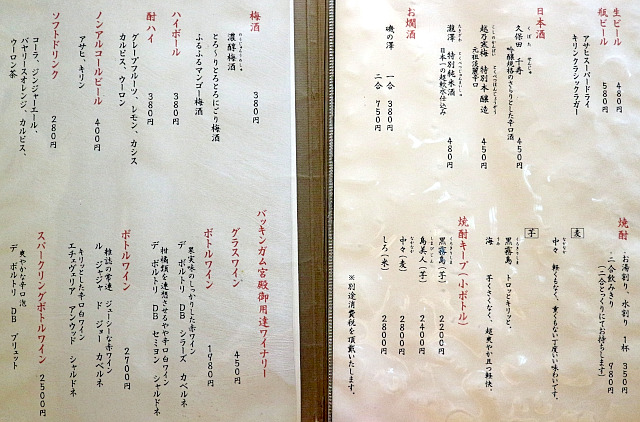 生ビール　480円
瓶ビール　580円
アサヒスーパードライ
キリンクラシックラガー
日本酒
くぼた　せんじゅ
久保田　千寿　450円
吟醸規格のさらりとした辛口酒
こしのかんばい　とくべつほんじょうぞう
越乃寒梅　特別本醸造　450円
元祖淡麗辛口
たきざわ　とくべつじゅんまいしゅ
瀧澤　特別純米酒　480円
日本一の超軟水仕込み
お燗酒
磯の澤　一合　380円
二合　750円
焼酎　お湯割り、水割り　1杯　350円
二合飲みきり　780円
(二合とっくりにてお持ちします)
麦
なかなか
中々　軽くもなく、重くもない丁度いい味わいです。
芋
くろきりしま
黒霧島　トロッとキリッと、
海　芋くさくなく、超爽やか且つ軽快。
焼酎キープ(小ボトル)
くろきりしま
黒霧島(芋)　2200円
しまびじん
島美人(芋)　2400円
なかなか
中々(麦)　2800円
しろ(米)　2800円
※別途消費税を頂戴いたします。
梅酒　380円
のうじゅんうめしゅ
濃醇梅酒
とろ〜りとろとろにごり梅酒
ふるふるマンゴー梅酒
ハイボール　380円
酎ハイ　380円
グレープフルーツ、レモン、カシス
カルピス、ウーロン
ノンアルコールビール　400円
アサヒ、キリン
ソフトドリンク　280円
コーラ、ジンジャーエール、
バヤリースオレンジ、カルピス、
ウーロン茶
バッキンガム宮殿御用達ワイナリー
グラスワイン　450円
ボトルワイン　1980円
果実味のしっかりした赤ワイン
デ　ボルトリ　DB　シラーズ　カベルネ
柑橘類を連想させるやや辛口白ワイン
デ　ボルトリ　DB　セミヨン　シャルドネ
ボトルワイン　2700円
雑誌の常連　ジューシーな赤ワイン
ル　ジャジャ　ド　ジョー　カベルネ
キリッとした辛口白ワイン
エチェヴェリア　アンウッド　シャルドネ
スパークリングボトルワイン　2500円
爽やかな辛口泡
デ　ボルトリ　DB　ブリュット